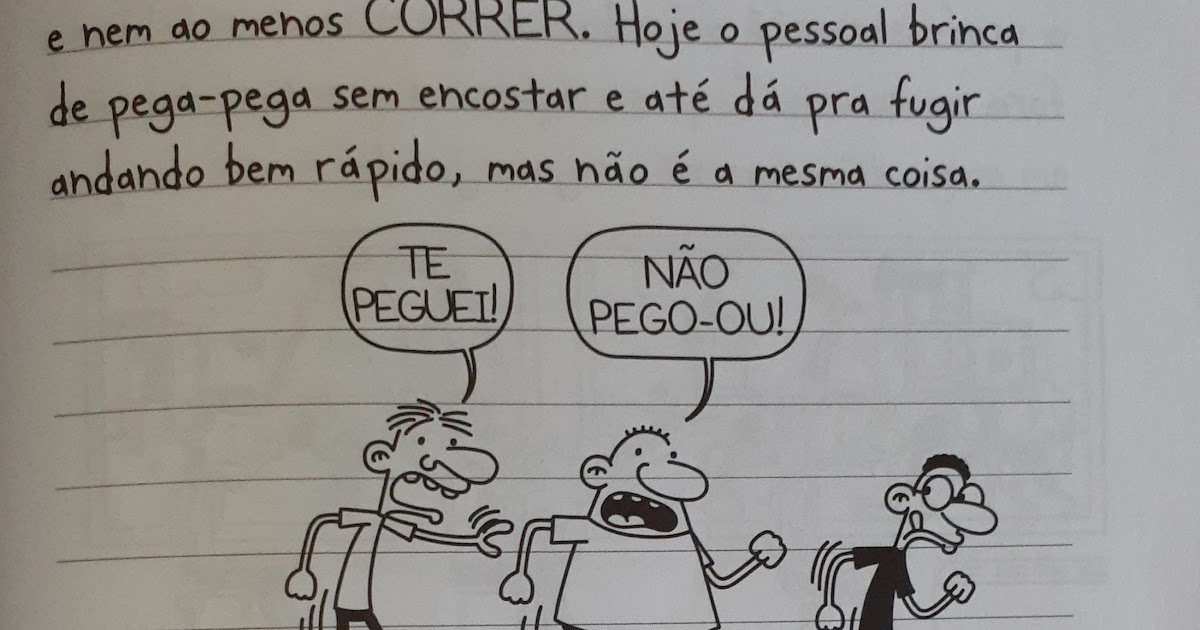 e nem ao menos CORRER. Hoje o pessoal brinca
de pega-pega sem encostar e até dá pra fugir
andando bem rápido, mas não é a mesma coisa.
TE
PEGUEI!
NÃO
PEGO-OU!